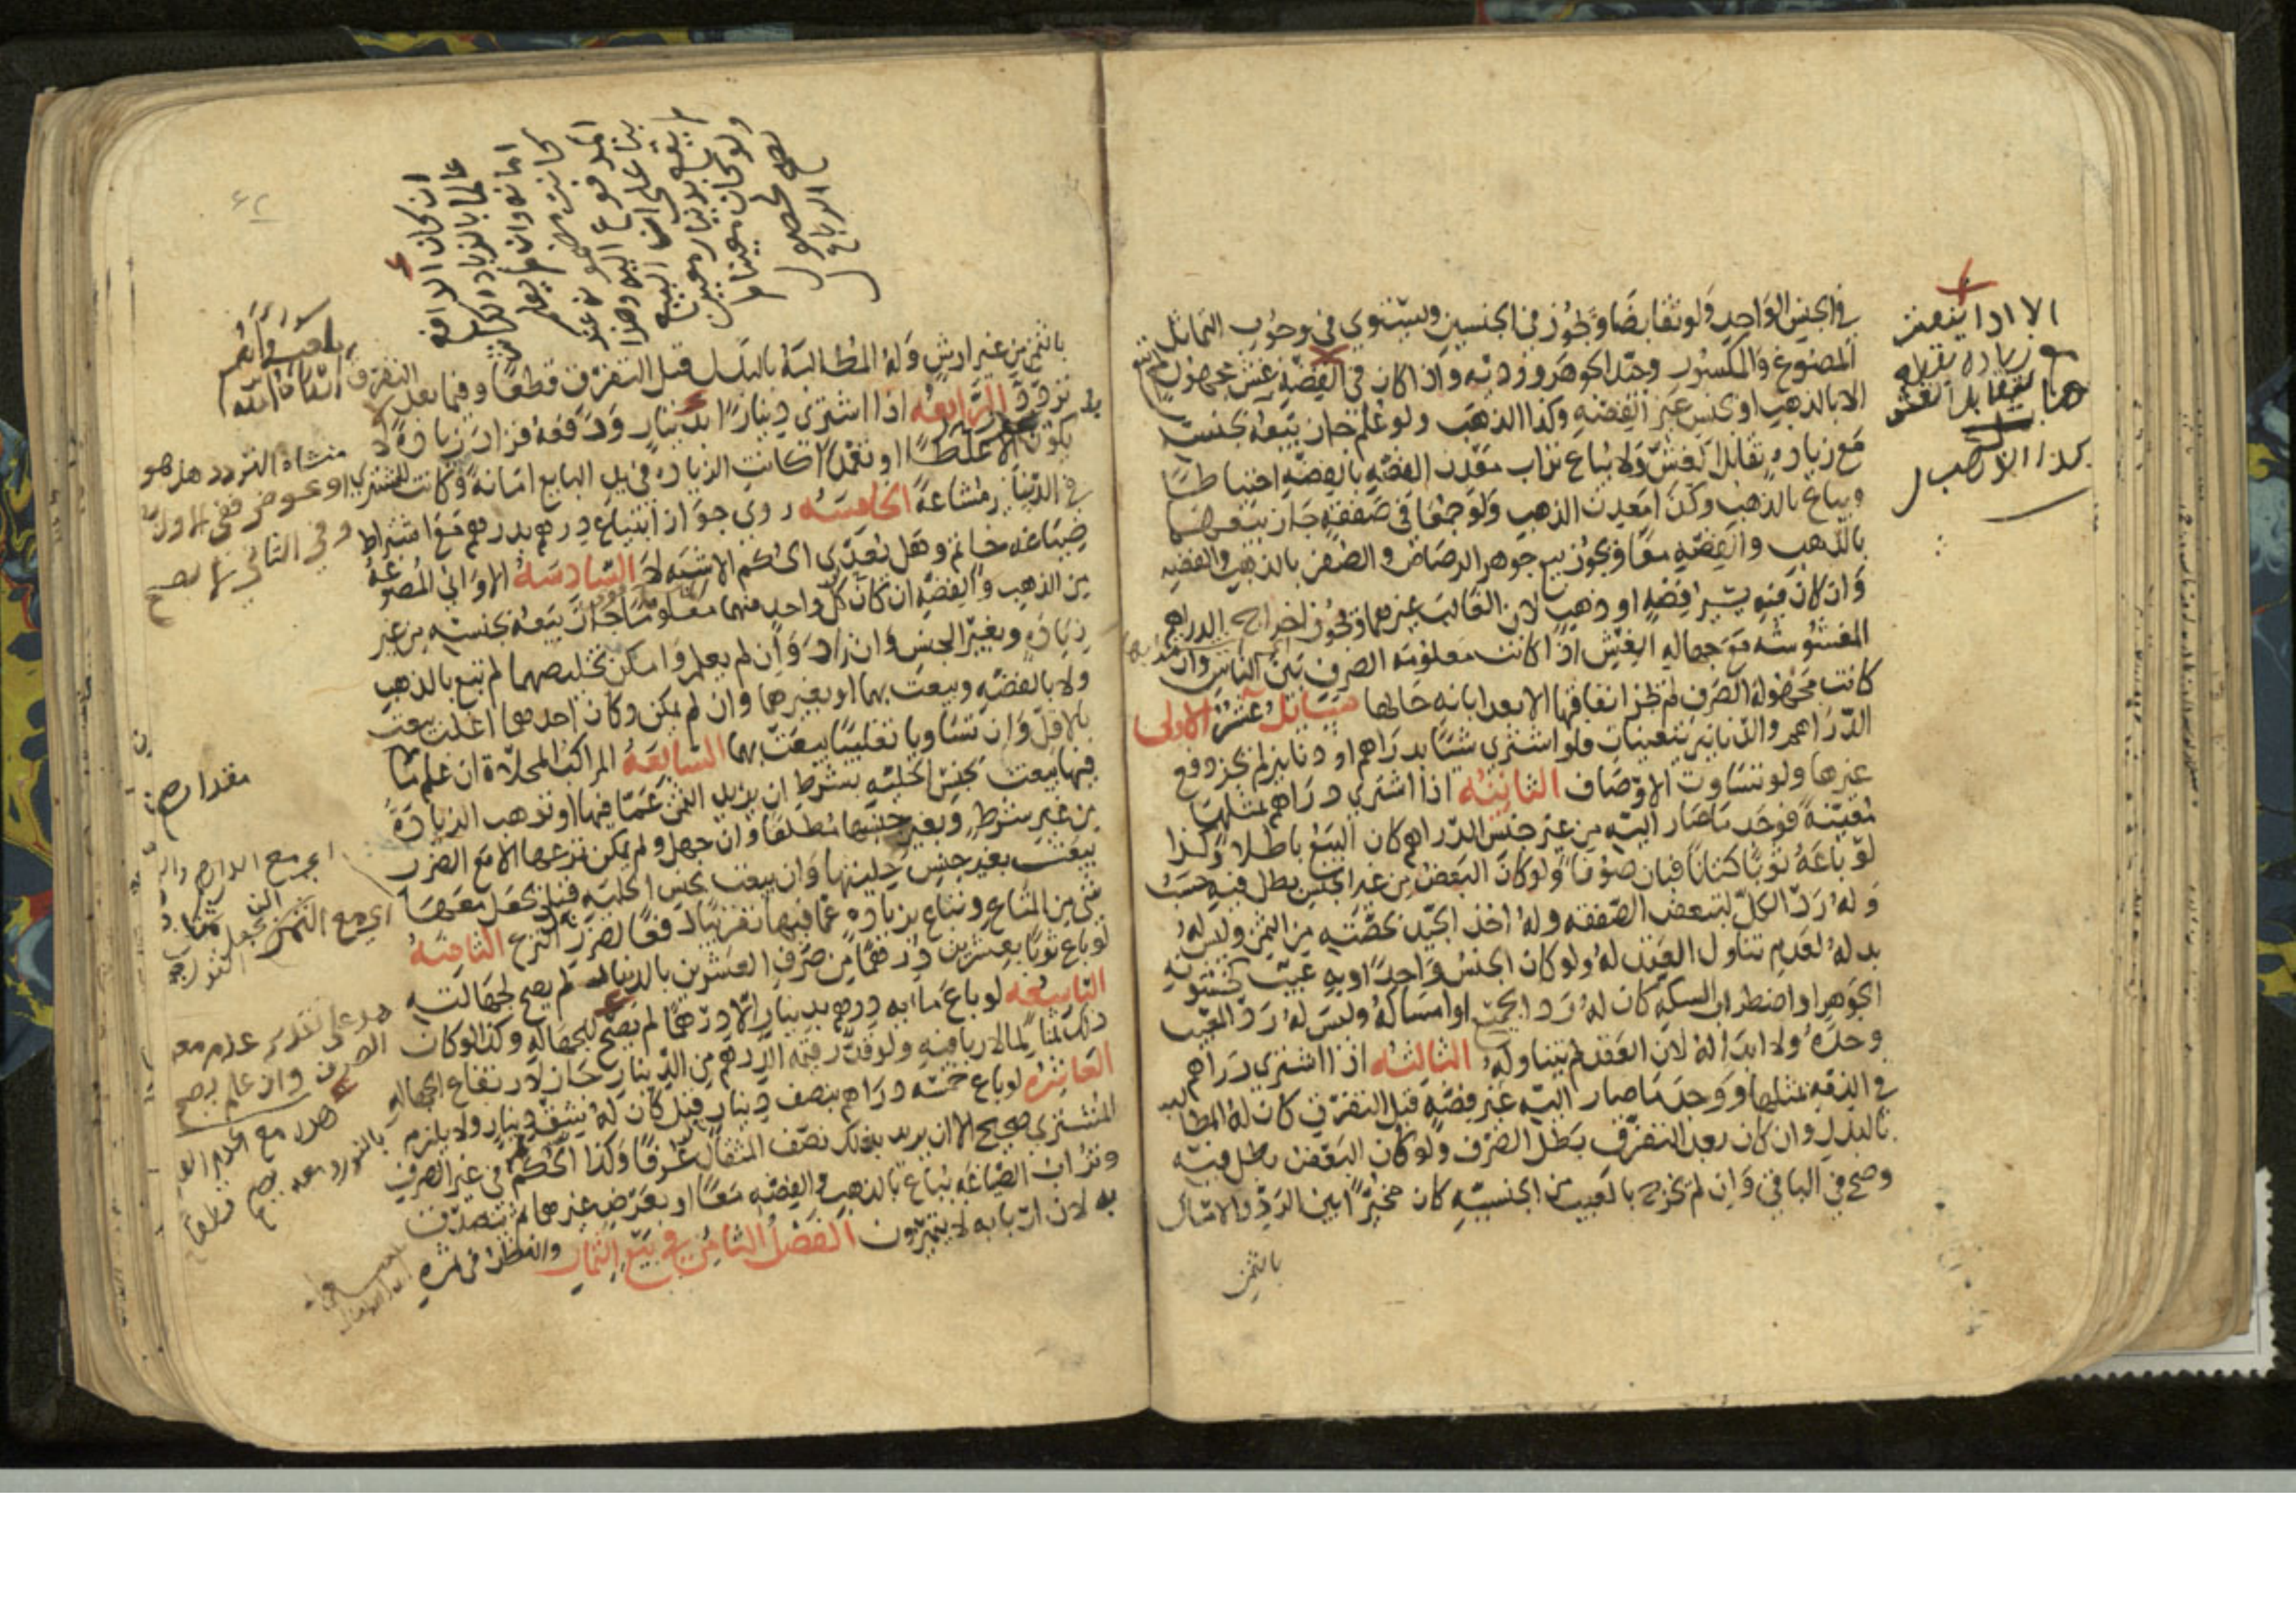 في الجنس الواحد ولو تقابضا ويجوز في الجنسين ويستوي في وجوب التماثل
المصنوع والمكسور وجيد الجوهر ورديه واذا كان في الفضة غش مجهول لم تبع
الا بالذهب او بجنس غير الفضه وكذا الذهب ولو علم جاز بيعه بجنسه
مع زياده تقابل الغش ولا يباع تراب معدن الفضه بالفضه احتياطا
ويباع بالذهب وكذا معدن الذهب ولو جمعا في صفقه جاز بيعهما
بالذهب والفضه معا ويجوز بيع جوهر الرصاص والصفر بالذهب والفضه
وان كان فيه يسير فضه او ذهب لان الغالب غيرهما ويجوز اخراج الدراهم
المغشوشه مع جهاله الغش اذا كانت معلومه الصرف بين الناس وان
كانت مجهولة الصرف لم يجز انفاقها الا بعد ابانه حالها مسائل عشر الاولى
الدراهم والدنانير يتعينان فلو اشتري شيئا بدراهم او دنانير لم يجز دفع
غيرها ولو تساوت الاوصاف الثانيه اذا اشتري دراهم بمثلها
معينة فوجد ما صار اليه من غير جنس الدراهم كان البيع باطلا وكذا
لو باعه ثوبا كتانا فبان صوفا ولو كان البعض من غير الجنس بطل فيه حسب
وله رد الكل لتبعض الصفقه وله اخذ الجيد بحصته من الثمن وليس له
بدله لعدم تناول العقد له ولو كان الجنس واحدا وبه عيب كخشونه
الجوهر او اضطراب السكه كان له رد الجميع او امساكه وليس له رد المعيب
وحده ولا ابداله لان العقد لم يتناوله الثالثه اذا اشتري دراهم
في الذمه بمثلها ووجد ما صار اليه غير فضه قبل التفرق كان له المطالبه
بالبدل وان كان بعد التفرق بطل الصرف ولو كان البعض بطل فيه
وصح في الباقي وان لم يخرج بالعيب من الجنسيه كان مخيرا بين الرد والامساك
بالثمن
الا اذا بيعت
مع زياده
هنا
بالثمن من غير ارش وله المطالبة بالبدل قبل التفرق قطعا وفيما بعد التفرق
تردد الرابعه اذا اشتري دينارا بدينار ودفعه فزاد زيادة لا
يكون الا غلطا او تعمدا كانت الزياده في يد البايع امانة وكانت للمشتري
في الدينار مشاعة الخامسه روي جواز ابتياع درهم بدرهم مع اشتراط
صياغه خاتم وهل يعدى الحكم الاشبه لا السادسه الاواني المصوغه
من الذهب والفضه ان كان كل واحد منهما معلوما جاز بيعه بجنسه من غير
زيادة وبغير الجنس وان زاد وان لم يعلم وامكن تخليصهما لم تبع بالذهب
ولا بالفضه وبيعت بهما او بغيرهما وان لم يمكن وكان احدهما اغلب بيعت
بالاقل وان تساويا تغليبا بيعت بهما السابعة المراكب المحلاة ان علم ما
فيها بيعت بجنس الحليه بشرط ان يزيد الثمن عما فيها او توهب الزيادة
من غير شرط وبغير جنسها مطلقا وان جهل ولم يمكن نزعها الا مع الضرر
بيعت بغير جنس حليتها وان بيعت بجنس الحليه قيل يجعل معها
شي من المتاع وتباع بزياده عما فيها تقريبا دفعا لضرر النزع الثامنه
لو باع ثوبا بعشرين درهما من صرف العشرين بالدينار لم يصح لجهالته
التاسعه لو باع مايه درهم بدينار الا درهما لم يصح للجهاله وكذا لو كان
ذلك ثمنا لما لا ربا فيه ولو قدر قيمه الدرهم من الدينار جاز لارتفاع الجهاله
العاشره لو باع خمسه دراهم بنصف دينار قيل كان له شق دينار ولا يلزم
المشتري صحيح الا ان يريد بذلك نصف المثقال عرفا وكذا الحكم في غير الصرف
وتراب الصياغه يباع بالذهب والفضه معا او بعرض غيرهما ثم يتصدق
به لان اربابه لا يتميزون الفصل الثامن في بيع الثمار والنظر في ثمره
ان كان الدافع
عالما بالزياده
امانه وان لم يعلم
كانت مضمونه عند
المدفوع اليه وهذا
بناء على ان البيع
دينار بدينار معين
ولو كان معينا لم
يصح لحصول
الربا
منشاء التردد هل هو
او عوض ففي الاول
وفي الثاني لا يصح
اي مع الثمن
هذا على تقدير عدم معه
الصرف وان علم يصح
٦٢